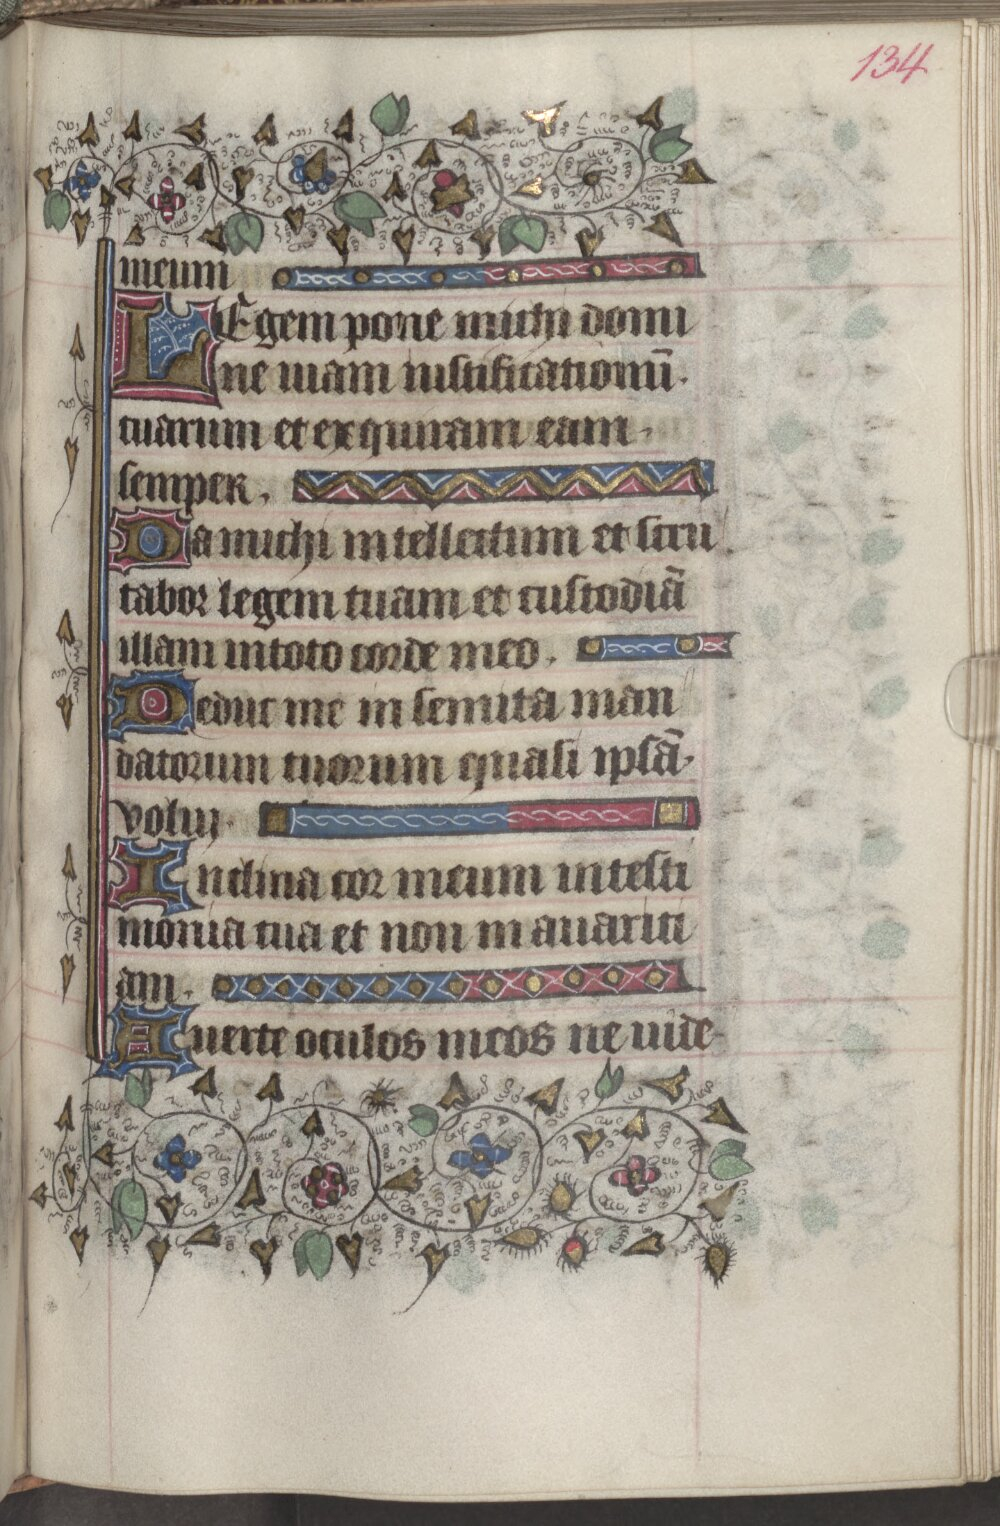 134
meum
LEgem pone michi domi
ne uiam iustificationū.
tuarum et exquiram eam.
semper.
Da michi intellectum et scru
tabor legem tuam et custodiā
illam in toto corde meo.
Deduc me in semita man
datorum tuorum quasi ipsā.
volui.
Inclina cor meum in testi
monia tua et non in auariti
am.
Auerte oculos meos ne uide